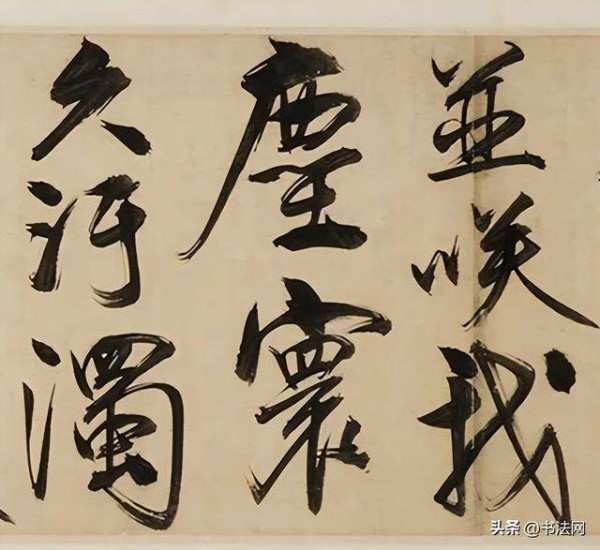 並咲我
塵寰
久汙濁
头条 @书法网